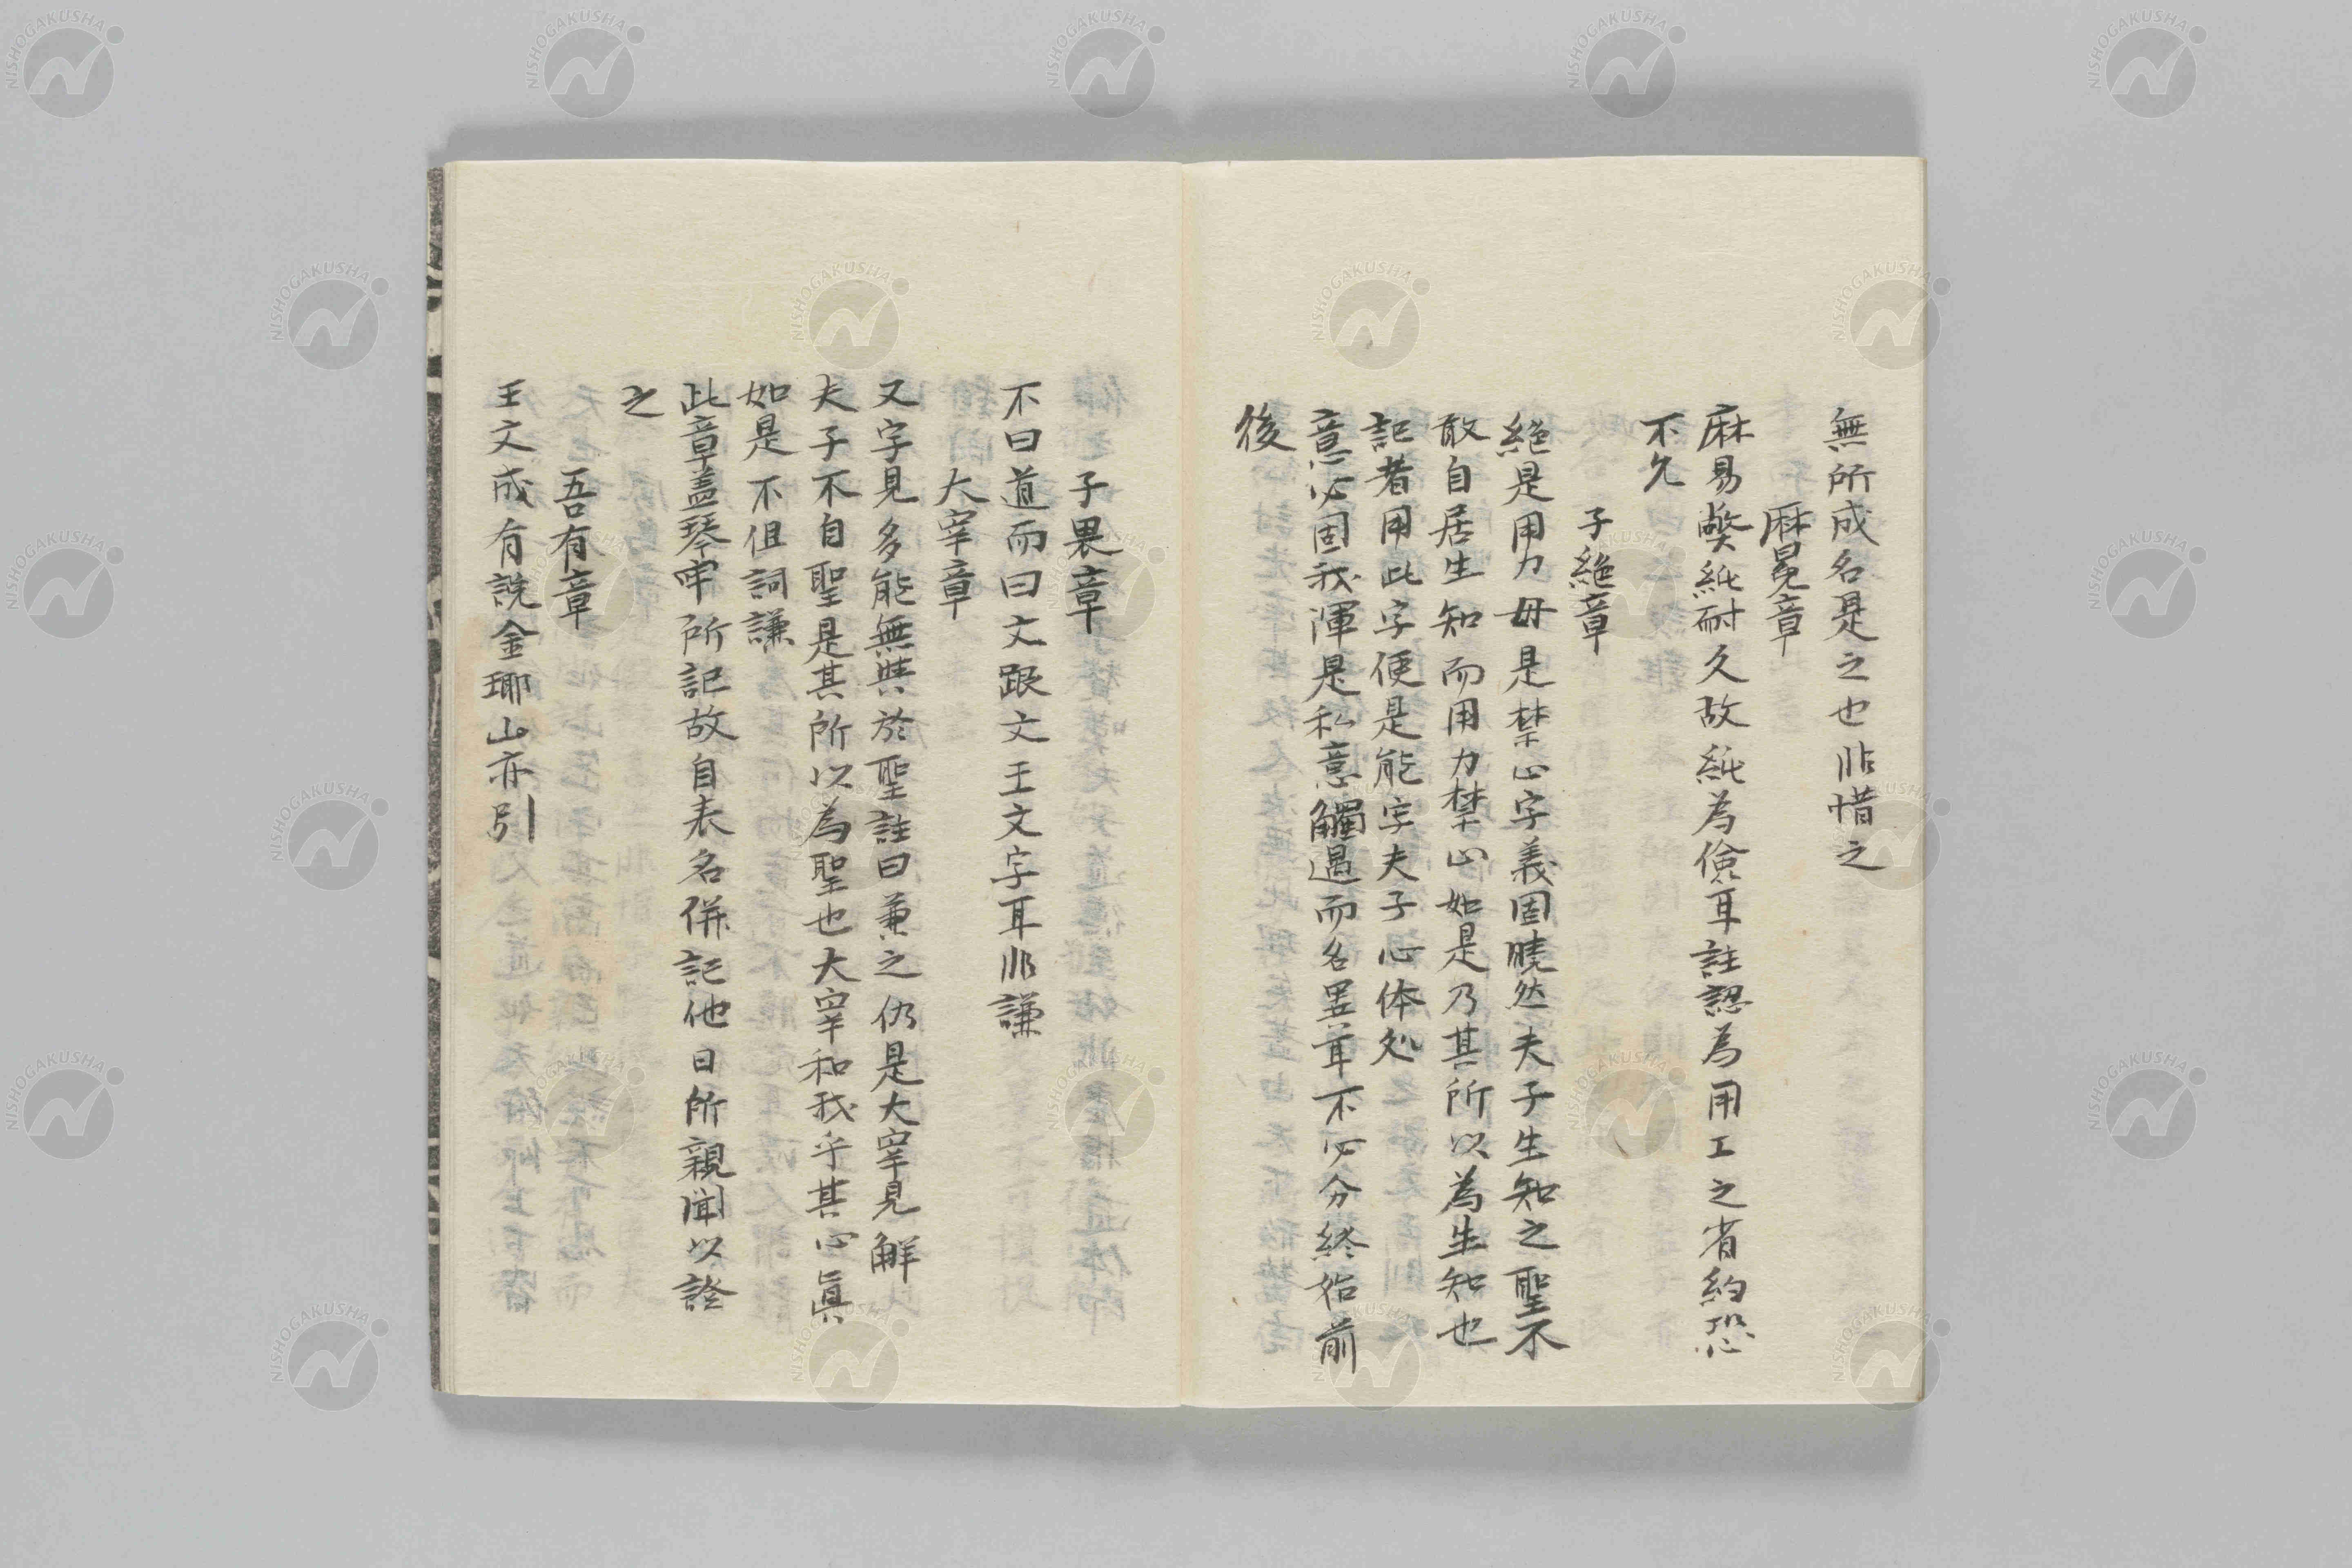 無所成名是之也非惜之
麻冕章
麻易敝純耐久故純為儉耳註認為用工之省約恐
不允
子絶章
絶是用力毋是禁止字義固曉然夫子生知之聖不
敢自居生知而用力禁止如是乃其所以為生知也
記者用此字便是能字夫子心体処
意必固我渾是私意觸過而名異耳不必分終始前
後
子畏章
不曰道而曰文跟文王文字耳非謙
大宰章
又字見多能無與於聖註曰兼之仍是大宰見解
夫子不自聖是其所以為聖也大宰知我乎其心真
如是不但詞謙
此章蓋琴牢所記故自表名併記他日所親聞以證
之
吾有章
王文成有説金瑘山亦引
NISHOGAKUSHA